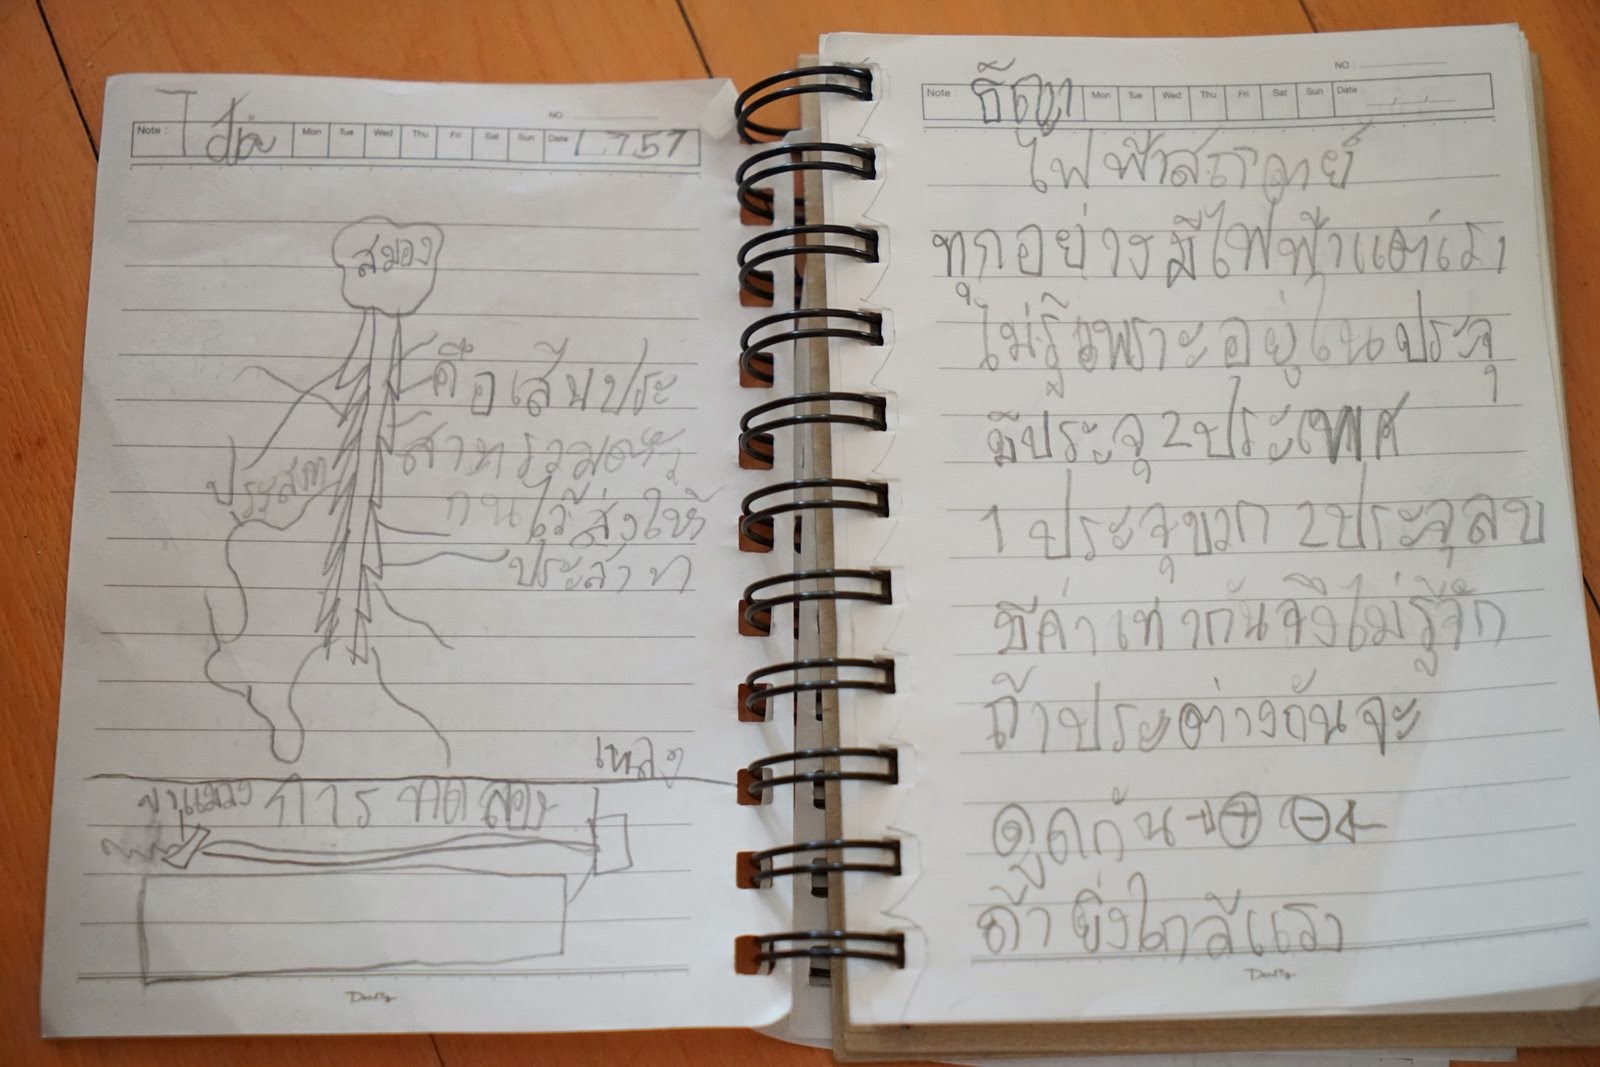 NO
Note :
Mon Tue Wed Thu Fri Sat Sun Date 1 7 57
สมอง
คือเส้นประ
สาทรวมตัว
กันไว้ส่งให้
ประสาท
ประสาท
เหล็ก
ขาแมวง การทดลอง
NO :
Note : ธัญา Mon Tue Wed Thu Fri Sat Sun Date :
ไฟฟ้าสถิตย์
ทุกอย่างมีไฟฟ้าแต่เรา
ไม่รู้เพราะอยู่ในประจุ
มีประจุ 2 ประเทศ
1 ประจุบวก 2 ประจุลบ
มีค่าเท่ากันจึงไม่รู้จัก
ถ้าประต่างกันจะ
ดูดกัน → ⊕ ⊖ ←
ถ้ายิ่งใกล้แรง